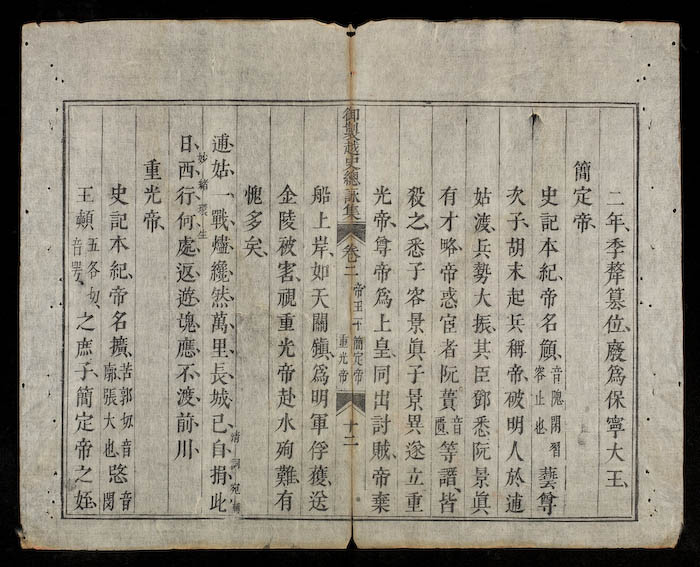 二年、季犛篡位、廢爲保寧大王、
簡定帝、
史記本紀、帝名頠、音隗閑習容止也藝尊
次子、胡末起兵稱帝、破明人於逋
姑渡、兵勢大振、其臣鄧悉阮景眞
有才略、帝惑宦者阮蕢音匱等譖、皆
殺之、悉子容景眞子景異、遂立重
光帝、尊帝爲上皇、同出討賊、帝棄
御製越史總詠集 卷二 帝王下 簡定帝 重光帝 十二
船上岸、如天關鎭、爲明軍俘獲、送
金陵被害、視重光帝赴水殉難、有
愧多矣、
逋姑一戰燼纔然、萬里長城已自捐、此
日西行何處返、遊魂應不渡前川、
妙緒環生
清詞宛轉
重光帝、
史記本紀、帝名擴、苦郭切音廓張大也愍音閔
王頔五各切音咢、之庶子、簡定帝之姪、